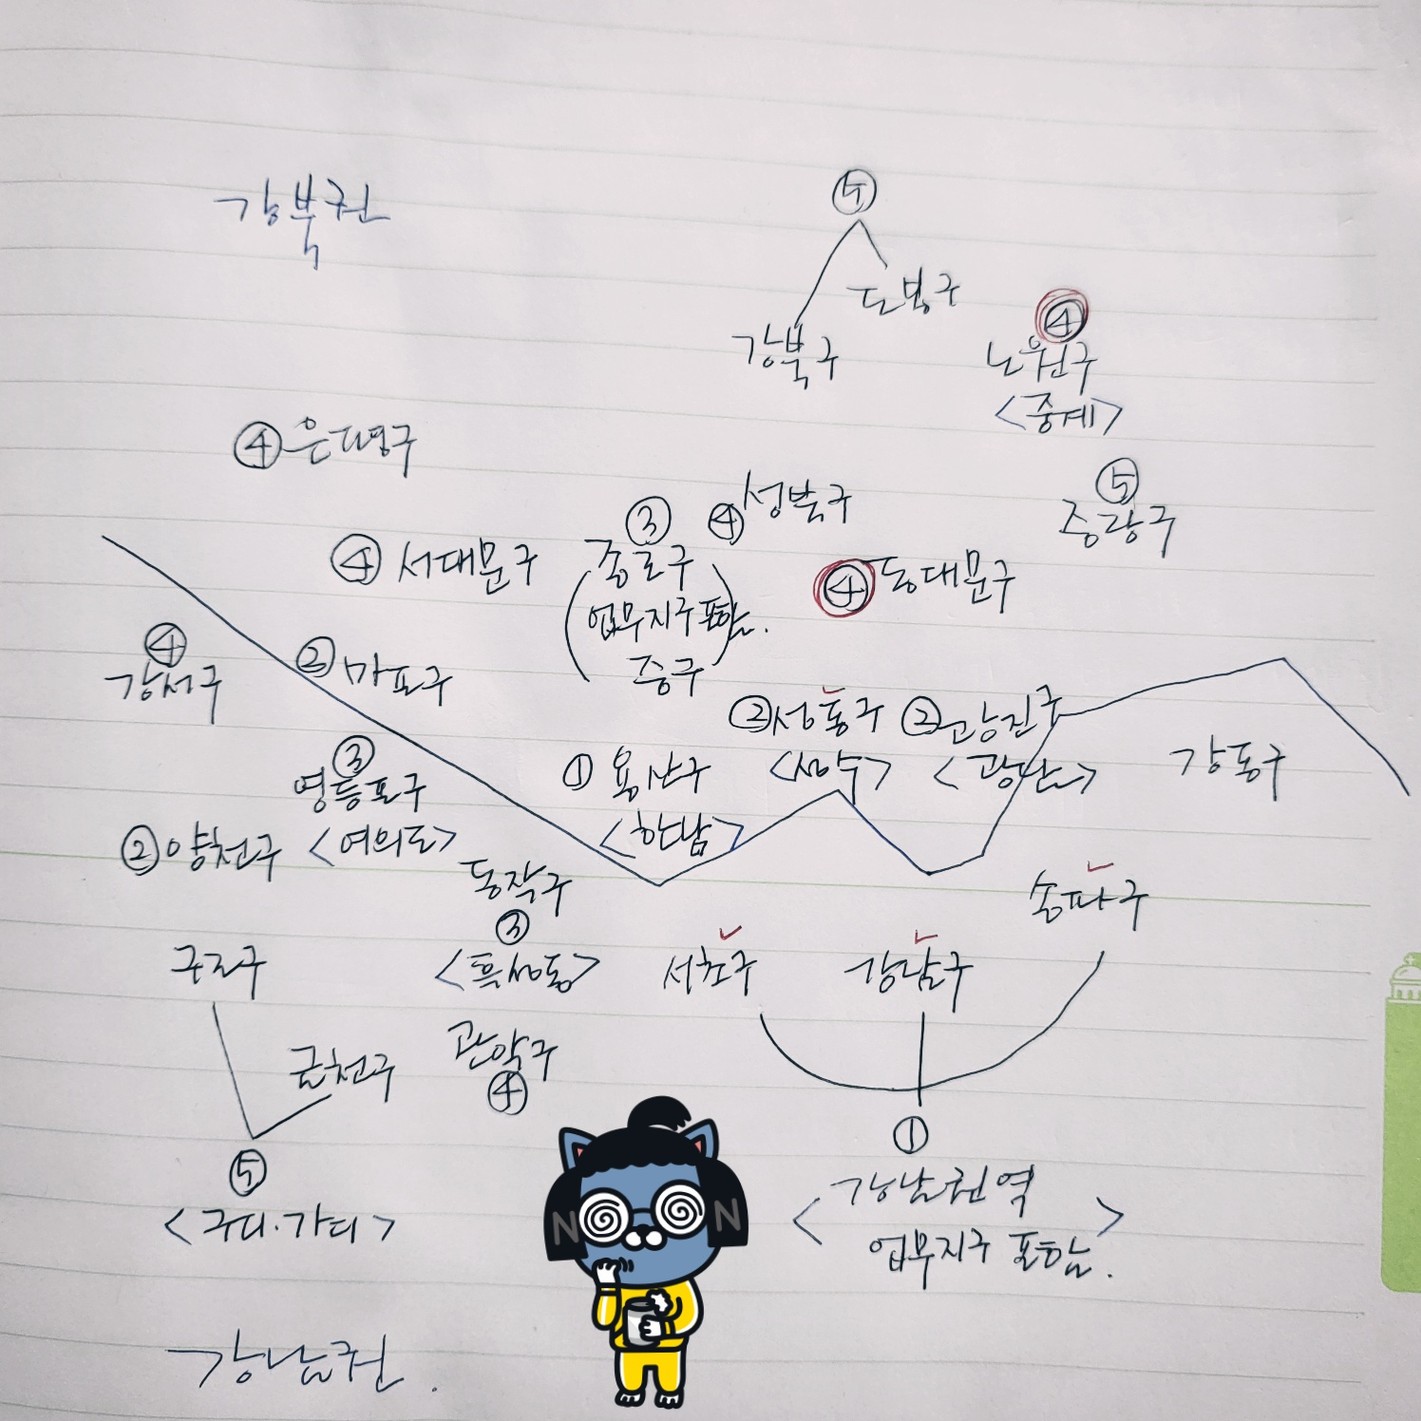 강북권
⑤
도봉구
강북구
④
노원구
<중계>
④ 은평구
④ 성북구
⑤
중랑구
③
종로구
업무지구 포함.
중구
④ 서대문구
④ 동대문구
④
강서구
② 마포구
② 성동구
<성수>
② 광진구
<광난>
① 용산구
<한남>
강동구
③
영등포구
<여의도>
② 양천구
동작구
③
<흑석동>
송파구
서초구
강남구
구로구
금천구
관악구
④
⑤
<구디·가디>
①
<강남권역
업무지구 포함.>
N N
강남권.